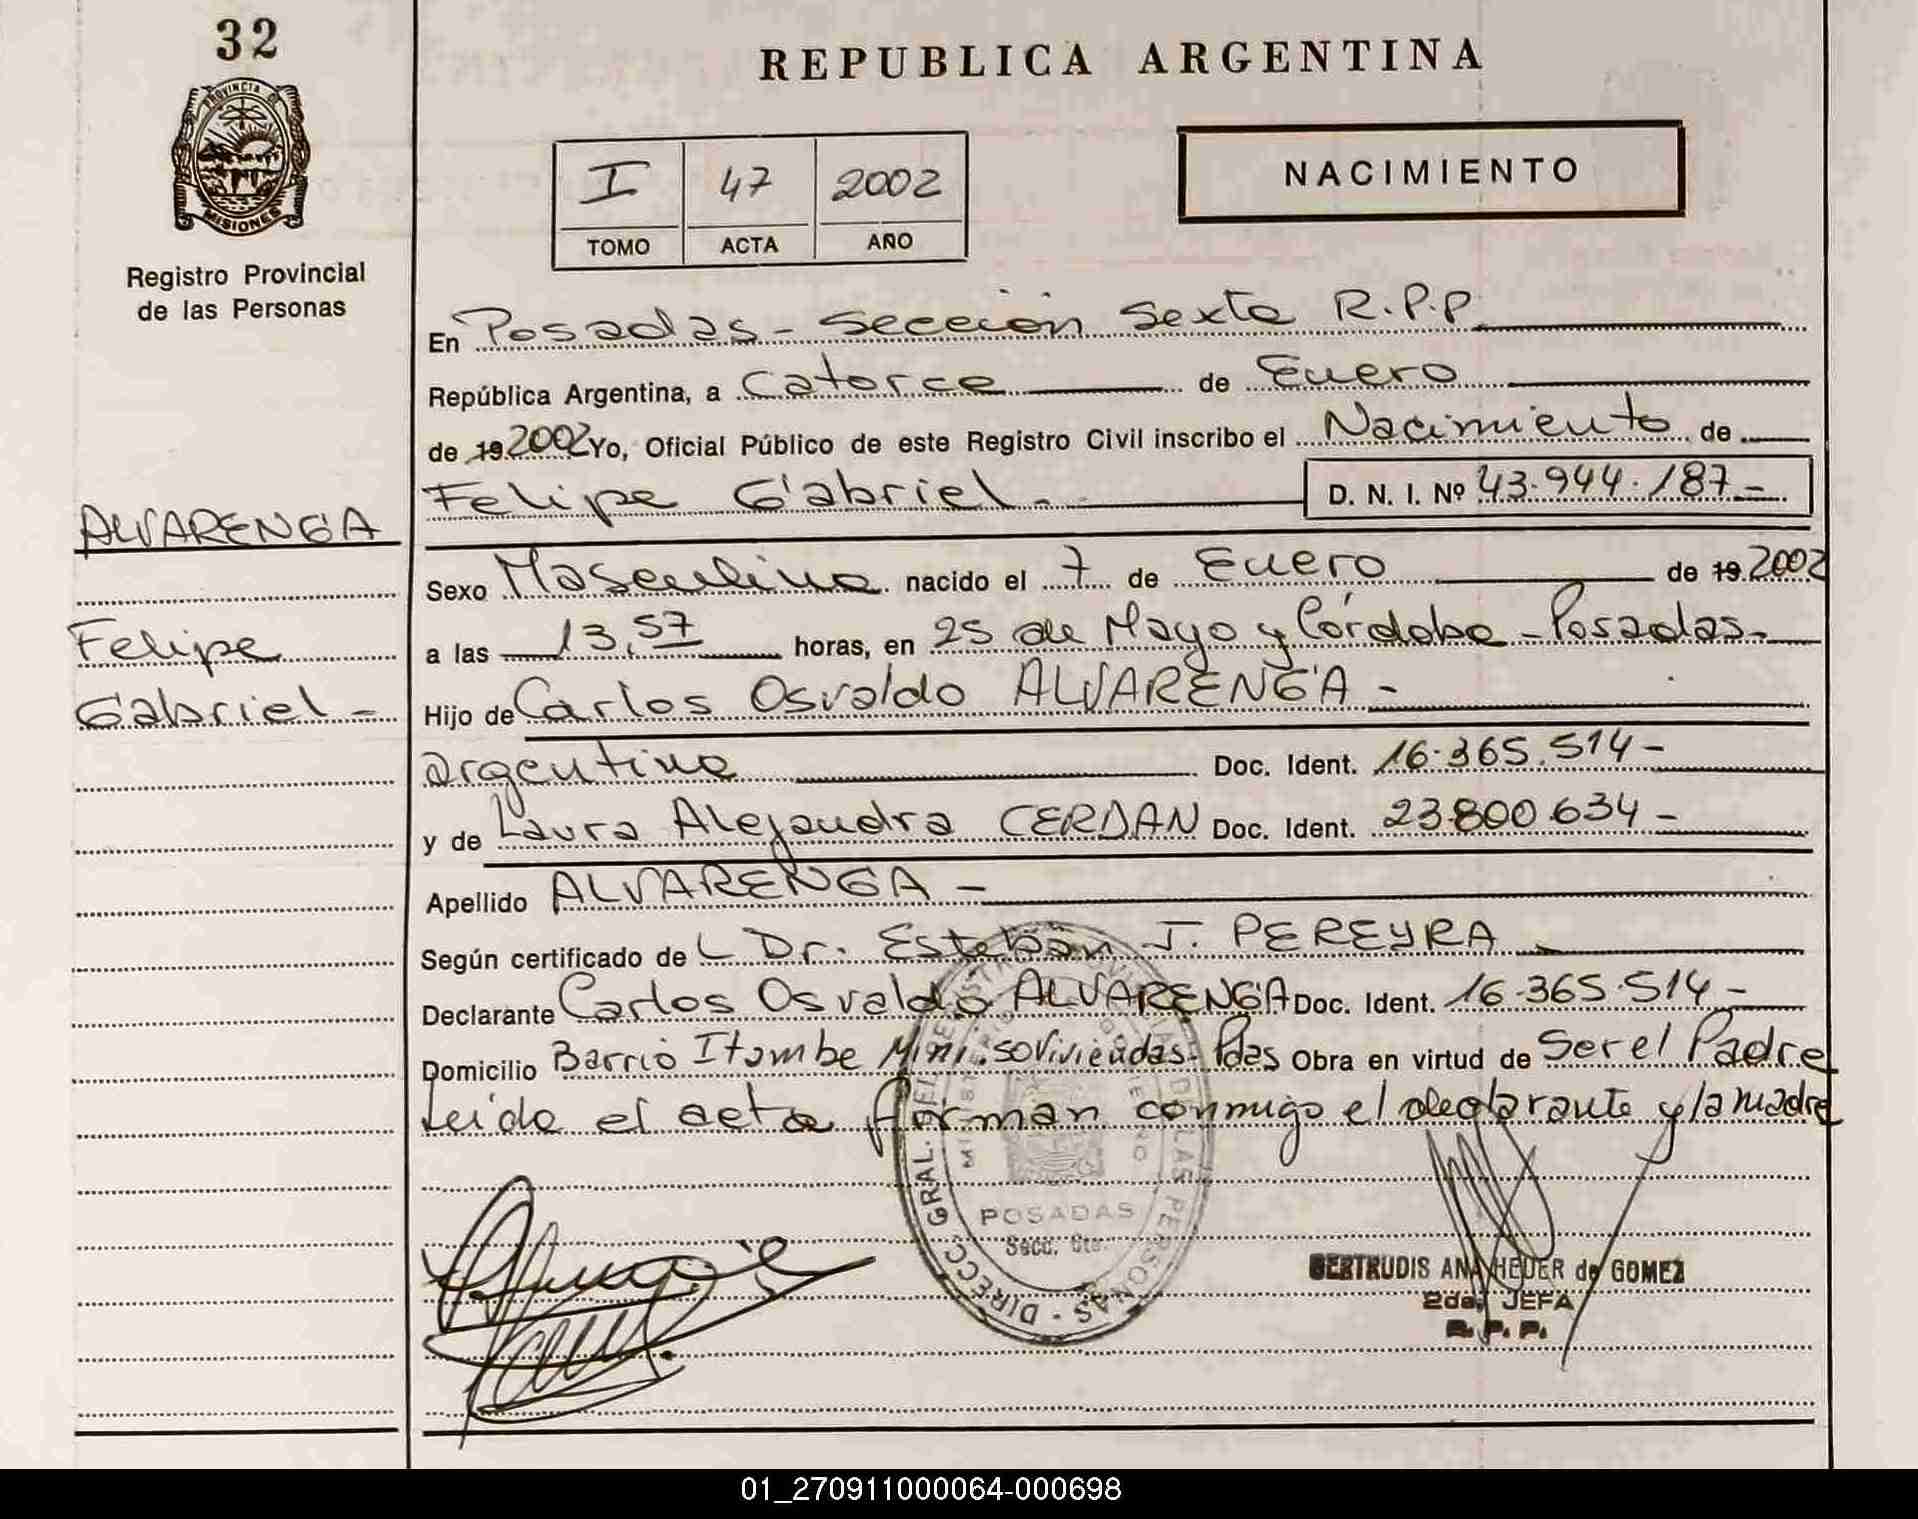 32
PROVINCIA DE
MISIONES
Registro Provincial
de las Personas
REPUBLICA ARGENTINA
I 47 2002
TOMO ACTA AÑO
NACIMIENTO
En Posadas - Sección Sexta R.P.P.
República Argentina, a Catorce de Enero
de 19 2002 Yo, Oficial Público de este Registro Civil inscribo el Nacimiento de
Felipe Gabriel - D. N. I. Nº 43.944.187-
ALVARENGA
Felipe
Gabriel -
Sexo Masculino nacido el 7 de Enero de 19 2002
a las 13,57 horas, en 25 de Mayo y Córdoba - Posadas -
Hijo de Carlos Osvaldo ALVARENGA -
argentino Doc. Ident. 16.365.514-
y de Laura Alejandra CERDAN Doc. Ident. 23.800.634-
Apellido ALVARENGA -
Según certificado de L Dr. Esteban J. PEREYRA
Declarante Carlos Osvaldo ALVARENGA Doc. Ident. 16.365.514-
Domicilio Barrio Itambe Mini. 50 Viviendas - Pdas Obra en virtud de Ser el Padre
Leida el acta firman conmigo el declarante y la madre
POSADAS
Secc. 6ta.
GERTRUDIS ANA HEDER de GOMEZ
2da. JEFA
R. P. P.
01_270911000064-000698